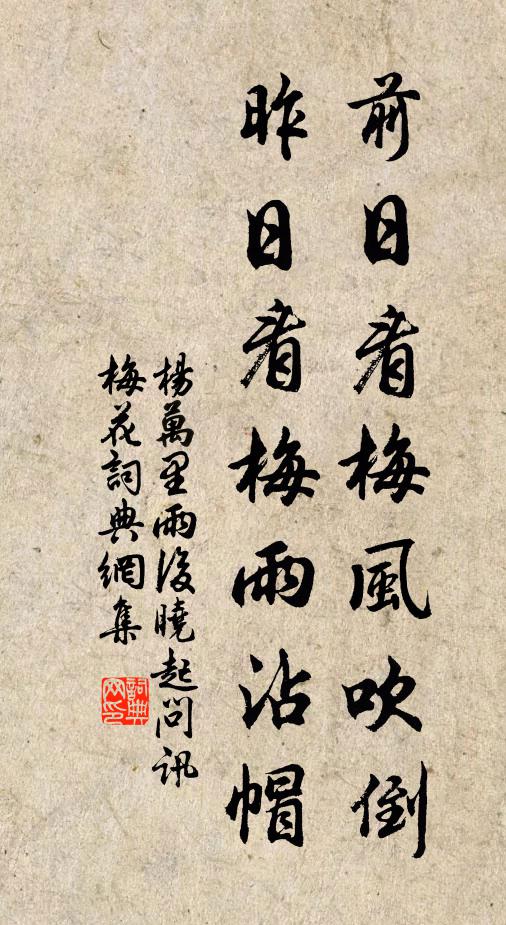 前日看梅風吹倒
昨日看梅雨沾帽
楊萬里雨後曉起問訊
梅花詞典網集
詞典
网印